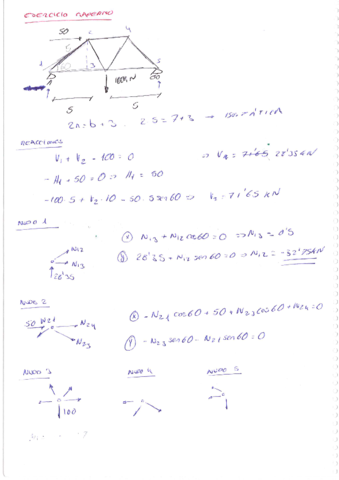 EJERCICIO
50
2
4
1
3
5
100kN
5
5
2n = b + 3   2·5 = 7 + 3 →
REACCIONES
V1 + V2 - 100 = 0   ⇒ VA = 28'35 kN
- H1 + 50 = 0 ⇒ H1 = 50
-100·5 + V2·10 - 50·5 sen60 ⇒ V2 = 71'65 kN
NUDO 1
N12
N13
28'35
(x) N13 + N12 cos60 = 0 ⇒ N13 =
(y) 28'35 + N12 sen60 = 0 ⇒ N12 =
NUDO 2
50 N21
N24
N23
(x) - N21 cos60 + 50 + N23 cos60 + N24 = 0
(y) - N23 sen60 - N21 sen60 = 0
NUDO 3   NUDO 4   NUDO 5
100